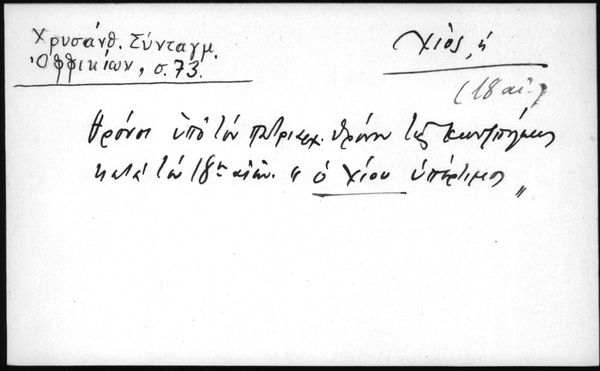 Χρυσάνθ. Σύνταγμ.
Ὀφφικίων, σ. 73.
Χίος, ἡ
(18 αἰ.)
θρόνοι ὑπὸ τὸν πατριαρχ. θρόνον τῆς Κων/πόλεως
κατὰ τὸν 18ον αἰῶν. "ὁ Χίου ὑπέρτιμος"